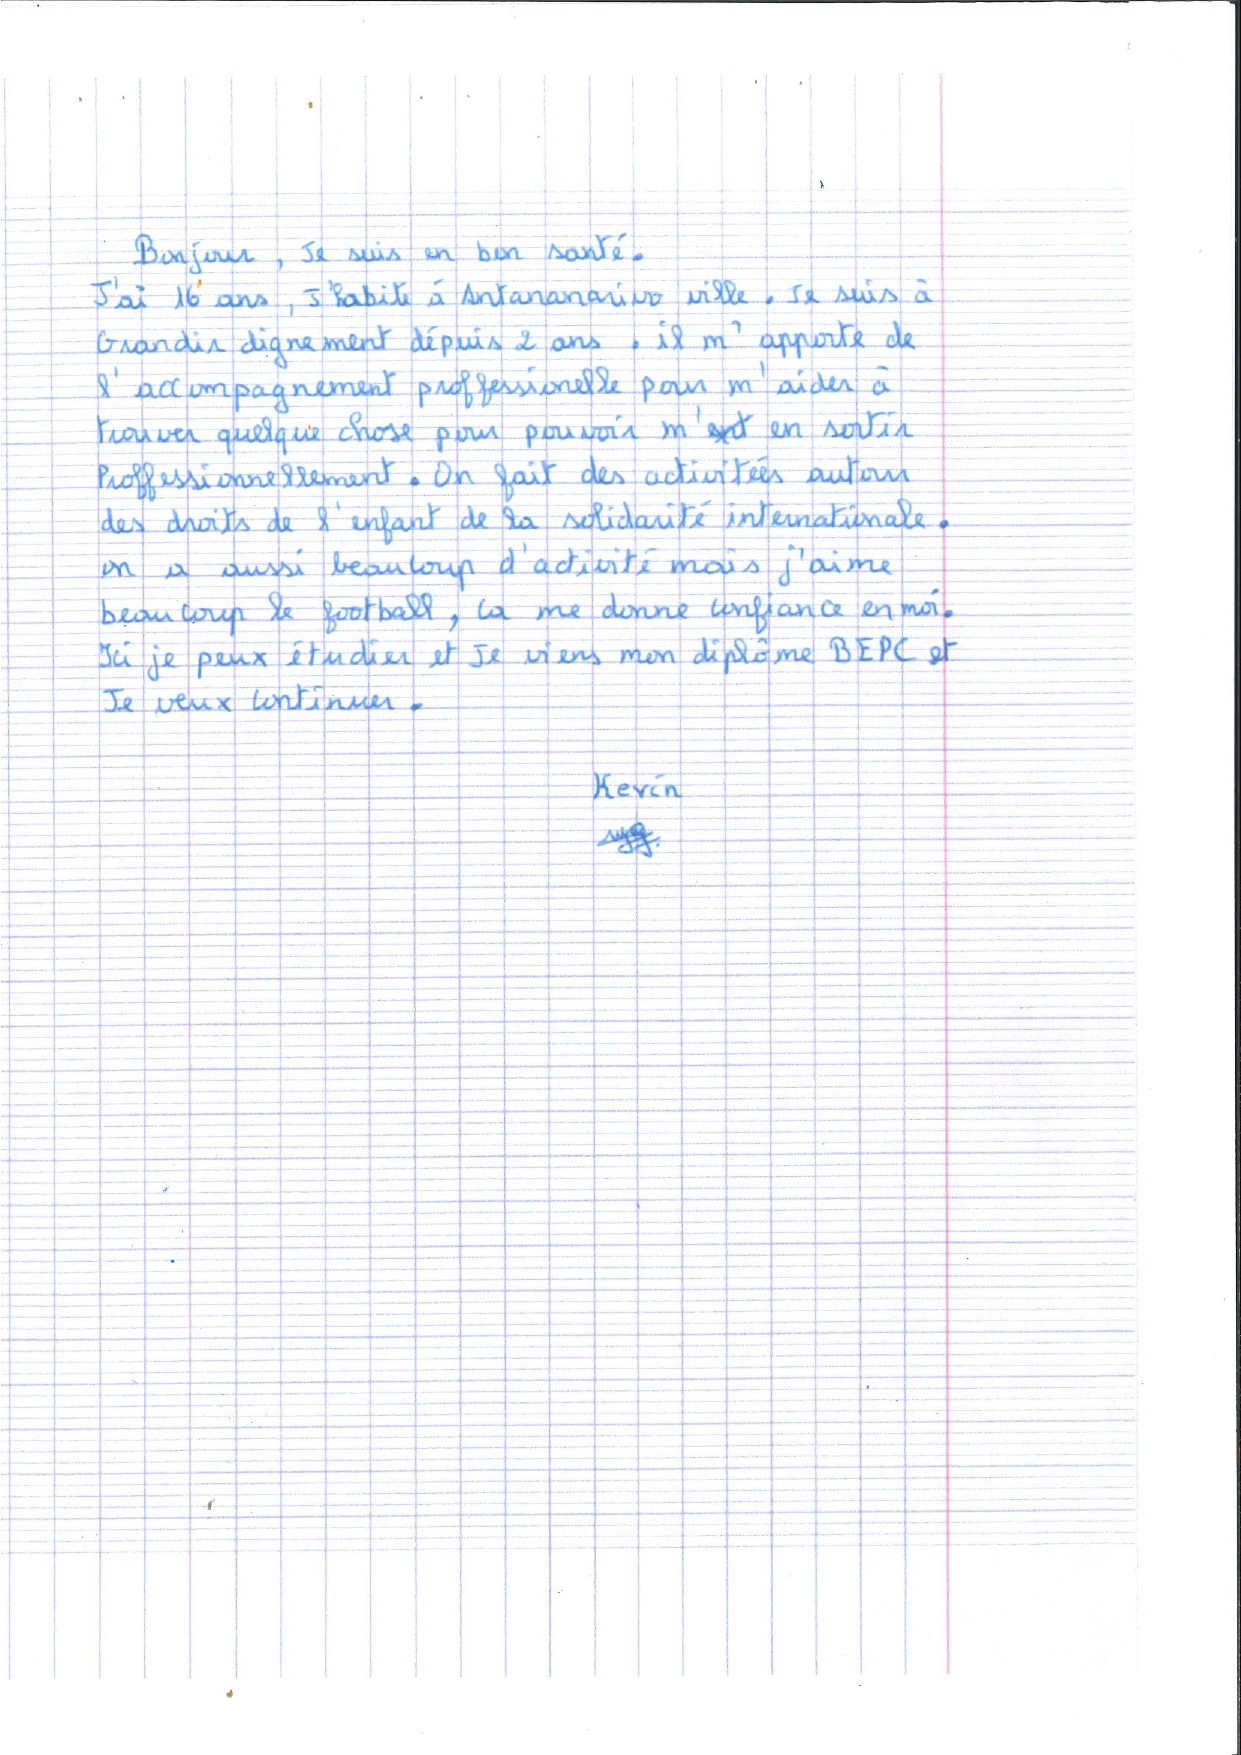 Bonjour, Je suis en bon santé.
J'ai 16 ans, J'habite à Antananarivo ville. Je suis à
Grandir dignement dépuis 2 ans. il m'apporte de
l'accompagnement proffessionelle pour m'aider à
trouver quelque chose pour pouvoir m' en sortir
Proffessionnellement. On fait des activitées autour
des droits de l'enfant de la solidarité internationale.
on a aussi beaucoup d'activité mais j'aime
beaucoup le football, ca me donne confiance en moi.
Ici je peux étudier et Je viens mon diplôme BEPC et
Je veux continuer.
Kevin